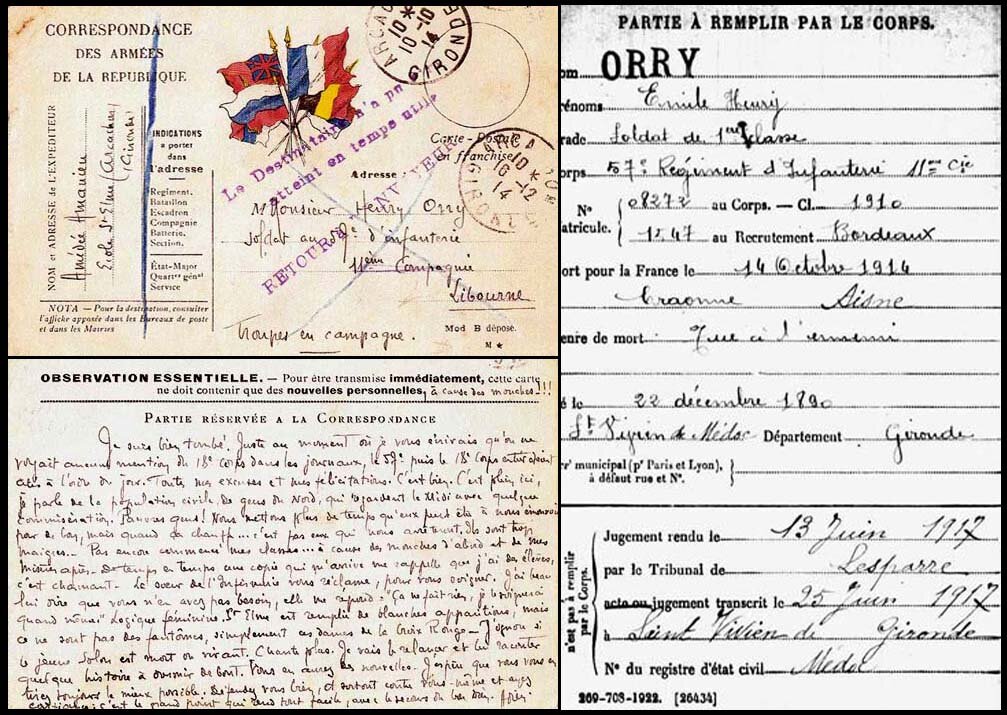 CORRESPONDANCE
DES ARMÉES
DE LA REPUBLIQUE
ARCAC
GIRONDE
10 *
10-10
14
Le Destinataire n'a pu
atteint en temps utile
RETOUR A L'ENVOYEUR
NOM et ADRESSE de L'EXPEDITEUR
Amédée Amanieu
Ecole St Elme (Arcachon)
(Gironde)
INDICATIONS
a porter
dans
l'adresse
Regiment.
Bataillon
Escadron
Compagnie
Batterie.
Section.
État-Major
Quartr génal
Service
Carte-Postale
en franchise
ARCA
10 *
16-12
14
Adresse :
Monsieur Henry Orry
Soldat au 57e d'infanterie
11ème Compagnie
Libourne
Troupes en campagne.
NOTA — Pour la destination, consulter
l'affiche apposée dans les Bureaux de poste
et dans les Mairies
Mod B déposé.
M *
OBSERVATION ESSENTIELLE. — Pour être transmise immédiatement, cette carte
ne doit contenir que des nouvelles personnelles, à cause des mouches!!!
PARTIE RÉSERVÉE A LA CORRESPONDANCE
Je suis bien tombé! Juste au moment où je vous écrivais qu'on ne
voyait aucune mention du 18e Corps dans les journaux, le 57e puis le 18e Corps
à l'ordre du jour. Toutes mes excuses et mes félicitations. C'est bien. C'est plein ici,
je parle de la population civile, de gens du Nord, qui regardent le Midi avec quelque
commisération. Pauvres gens! Nous mettons plus de temps qu'eux peut être à nous émouvoir
pour de bon, mais quand ça chauffe... c'est pas eux qui nous arrêteront, ils sont trop
maigres. Pas encore commencé mes classes... à cause des mouches d'abord et de mes
après. De temps en temps une copie qui m'arrive me rappelle que j'ai des élèves,
c'est charmant. La soeur de l'Infirmerie vous réclame, pour vous soigner. J'ai beau
lui dire que vous n'en avez pas besoin, elle me répond: "Ça ne fait rien, je le soignerai
quand même" Logique féminine. St Elme est rempli de blanches apparitions, mais
ce ne sont pas des fantômes, simplement ces dames de la Croix Rouge. J'ignore si
le jeune Solon est mort ou vivant. Chante plus. Je vais le relancer et lui raconter
quelque histoire à dormir debout. Vous en aurez des nouvelles. J'espère que vous vous en
tirez toujours le mieux possible. Défendez vous bien, et surtout contre vous-même et ayez
c'est le grand point qui rend tout facile, avec le secours du bon Dieu.
PARTIE À REMPLIR PAR LE CORPS.
om ORRY
rénoms Emile Henry
rade Soldat de 1ère classe
orps 57e Régiment d'Infanterie 11me Cie
N° 08272 au Corps. — Cl. 1910
atricule. 1547 au Recrutement Bordeaux
ort pour la France le 14 Octobre 1914
à Craonne Aisne
enre de mort Tué à l'ennemi
é le 22 décembre 1890
St Vivien de Médoc Département Gironde
rr' municipal (pr Paris et Lyon),
à défaut rue et N°.
n'est pas à remplir
par le Corps.
Jugement rendu le 13 Juin 1917
par le Tribunal de Lesparre
acte ou jugement transcrit le 25 Juin 1917
à Saint Vivien de Gironde
N° du registre d'état civil Médoc
269-708-1922. [26434]